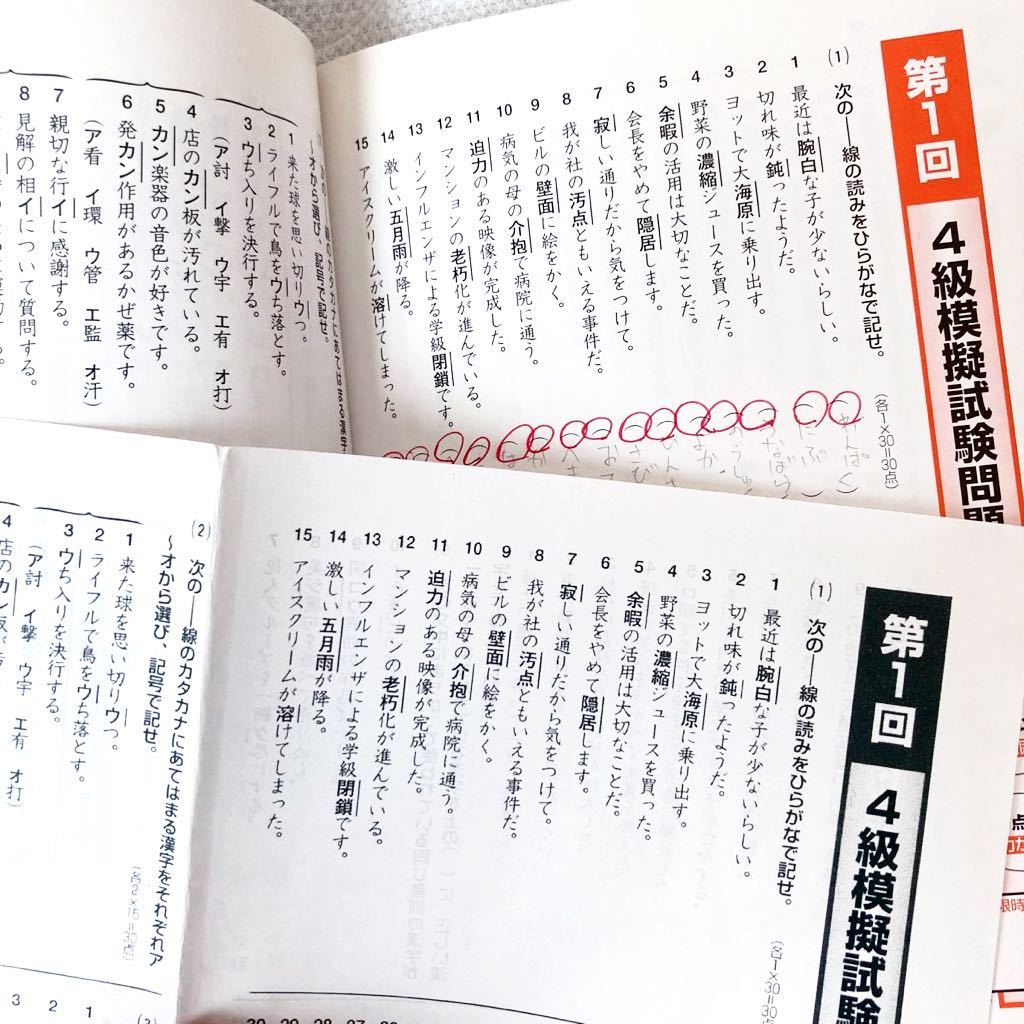 第1回
4級模擬試験問題
(1) 次の――線の読みをひらがなで記せ。
(各1×30=30点)
1 最近は腕白な子が少ないらしい。
2 切れ味が鈍ったようだ。
3 ヨットで大海原に乗り出す。
4 野菜の濃縮ジュースを買った。
5 余暇の活用は大切なことだ。
6 会長をやめて隠居します。
7 寂しい通りだから気をつけて。
8 我が社の汚点ともいえる事件だ。
9 ビルの壁面に絵をかく。
10 病気の母の介抱で病院に通う。
11 迫力のある映像が完成した。
12 マンションの老朽化が進んでいる。
13 インフルエンザによる学級閉鎖です。
14 激しい五月雨が降る。
15 アイスクリームが溶けてしまった。
わんぱく
にぶ
うなばら
～オから選び、記号で記せ。
1 来た球を思い切りウつ。
2 ライフルで鳥をウち落とす。
3 ウち入りを決行する。
(ア討 イ撃 ウ宇 エ有 オ打)
4 店のカン板が汚れている。
5 カン楽器の音色が好きです。
6 発カン作用があるかぜ薬です。
(ア看 イ環 ウ管 エ監 オ汗)
7 親切な行イに感謝する。
8 見解の相イについて質問する。
第1回
4級模擬試験
(1) 次の――線の読みをひらがなで記せ。
(各1×30=30点)
1 最近は腕白な子が少ないらしい。
2 切れ味が鈍ったようだ。
3 ヨットで大海原に乗り出す。
4 野菜の濃縮ジュースを買った。
5 余暇の活用は大切なことだ。
6 会長をやめて隠居します。
7 寂しい通りだから気をつけて。
8 我が社の汚点ともいえる事件だ。
9 ビルの壁面に絵をかく。
10 病気の母の介抱で病院に通う。
11 迫力のある映像が完成した。
12 マンションの老朽化が進んでいる。
13 インフルエンザによる学級閉鎖です。
14 激しい五月雨が降る。
15 アイスクリームが溶けてしまった。
(2) 次の――線のカタカナにあてはまる漢字をそれぞれア
～オから選び、記号で記せ。
(各2×15=30点)
1 来た球を思い切りウつ。
2 ライフルで鳥をウち落とす。
3 ウち入りを決行する。
(ア討 イ撃 ウ宇 エ有 オ打)
4 店のカン板が